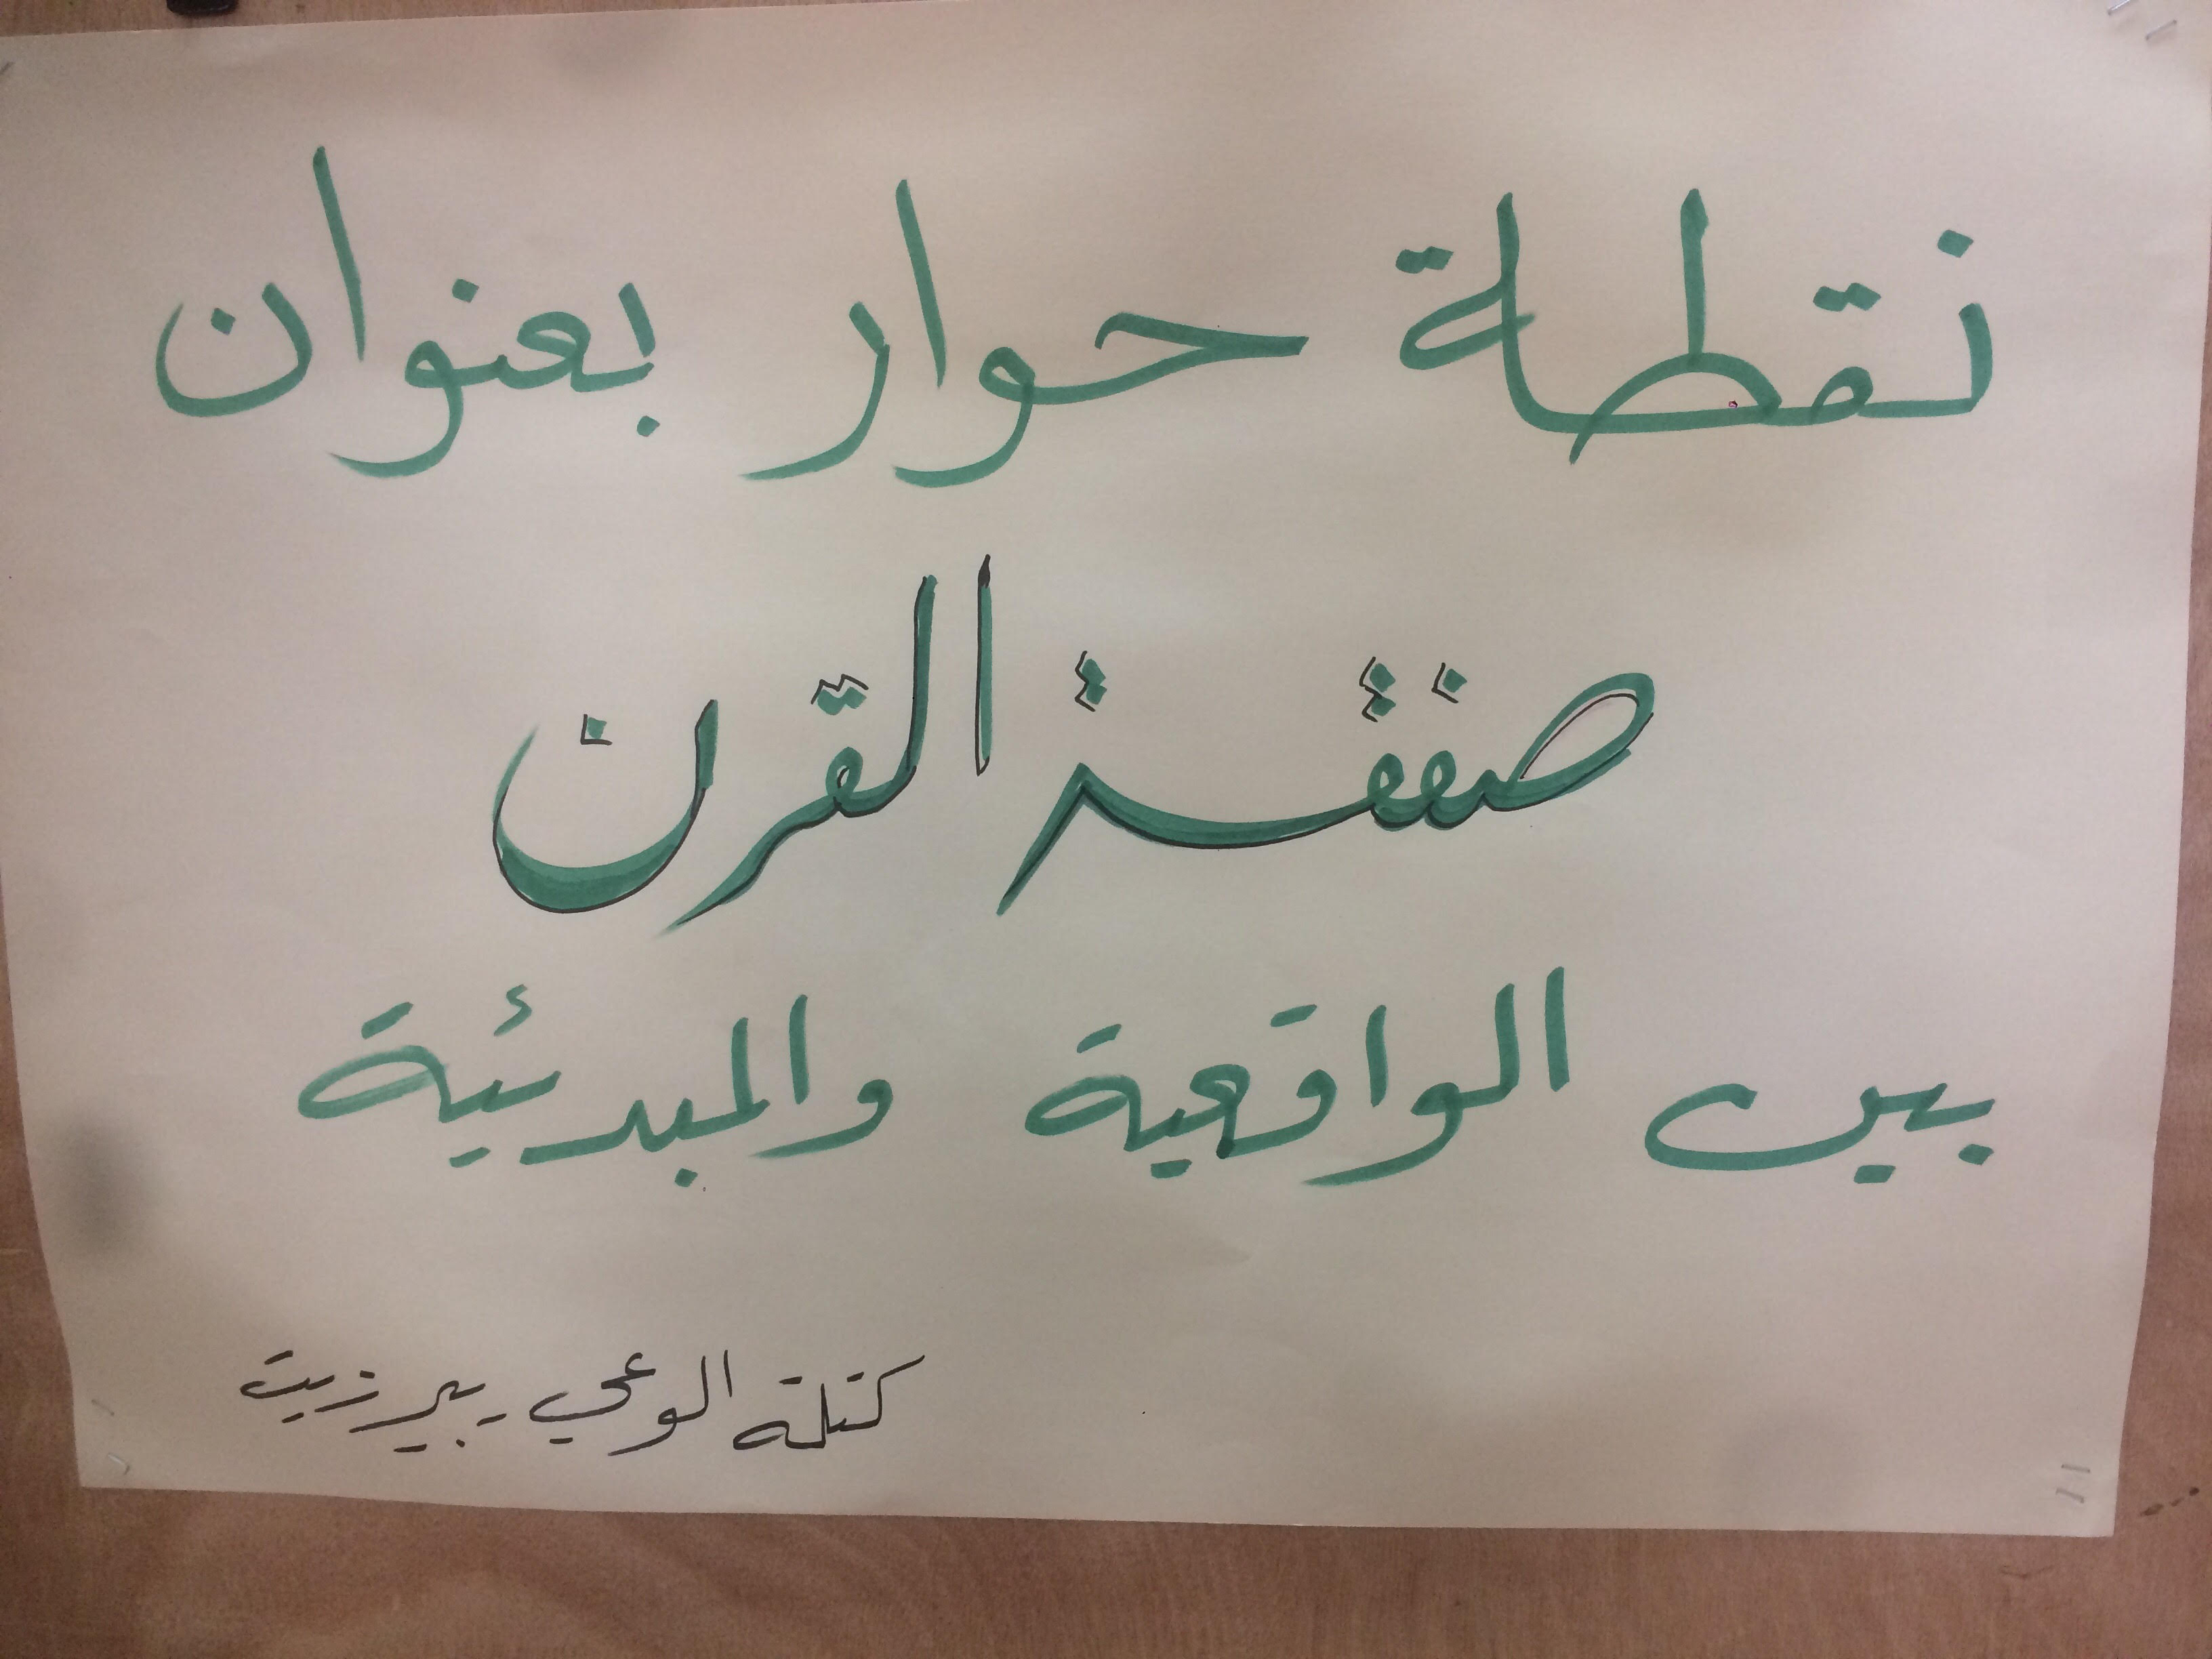 نقطة حوار بعنوان
صفقة القرن
بين الواقعية والمبدئية
كتلة الوعي - بيرزيت